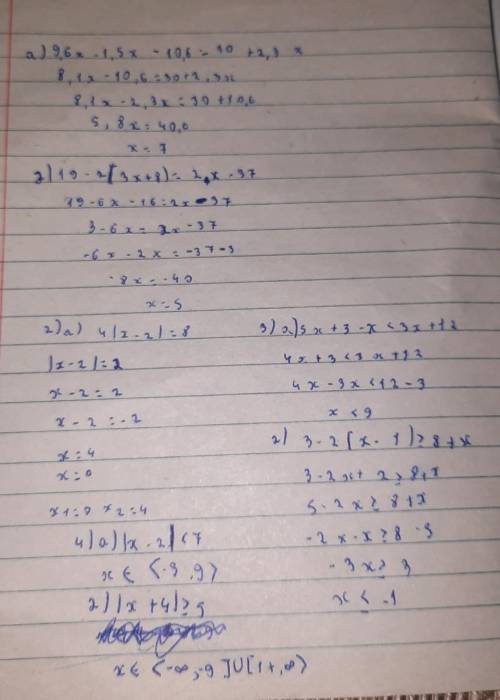 а) 9,6x - 1,5x - 10,6 = 30 + 2,3x
8,1x - 10,6 = 30 + 2,3x
8,1x - 2,3x = 30 + 10,6
5,8x = 40,6
x = 7
2) 19 - 2(3x + 8) = 2x - 37
19 - 6x - 16 = 2x - 37
3 - 6x = 2x - 37
-6x - 2x = -37 - 3
-8x = -40
x = 5
2) а) 4|x - 2| = 8
|x - 2| = 2
x - 2 = 2
x - 2 = -2
x = 4
x = 0
x1 = 0 x2 = 4
4) а) |x - 2| < 7
x ∈ <-5, 9>
2) |x + 4| ≥ 5
x ∈ <-∞, -9] U [1+, ∞>
3) а) 5x + 3 - x < 3x + 12
4x + 3 < 3x + 12
4x - 3x < 12 - 3
x < 9
2) 3 - 2(x - 1) ≥ 8 + x
3 - 2x + 2 ≥ 8 + x
5 - 2x ≥ 8 + x
-2x - x ≥ 8 - 5
-3x ≥ 3
x ≤ -1